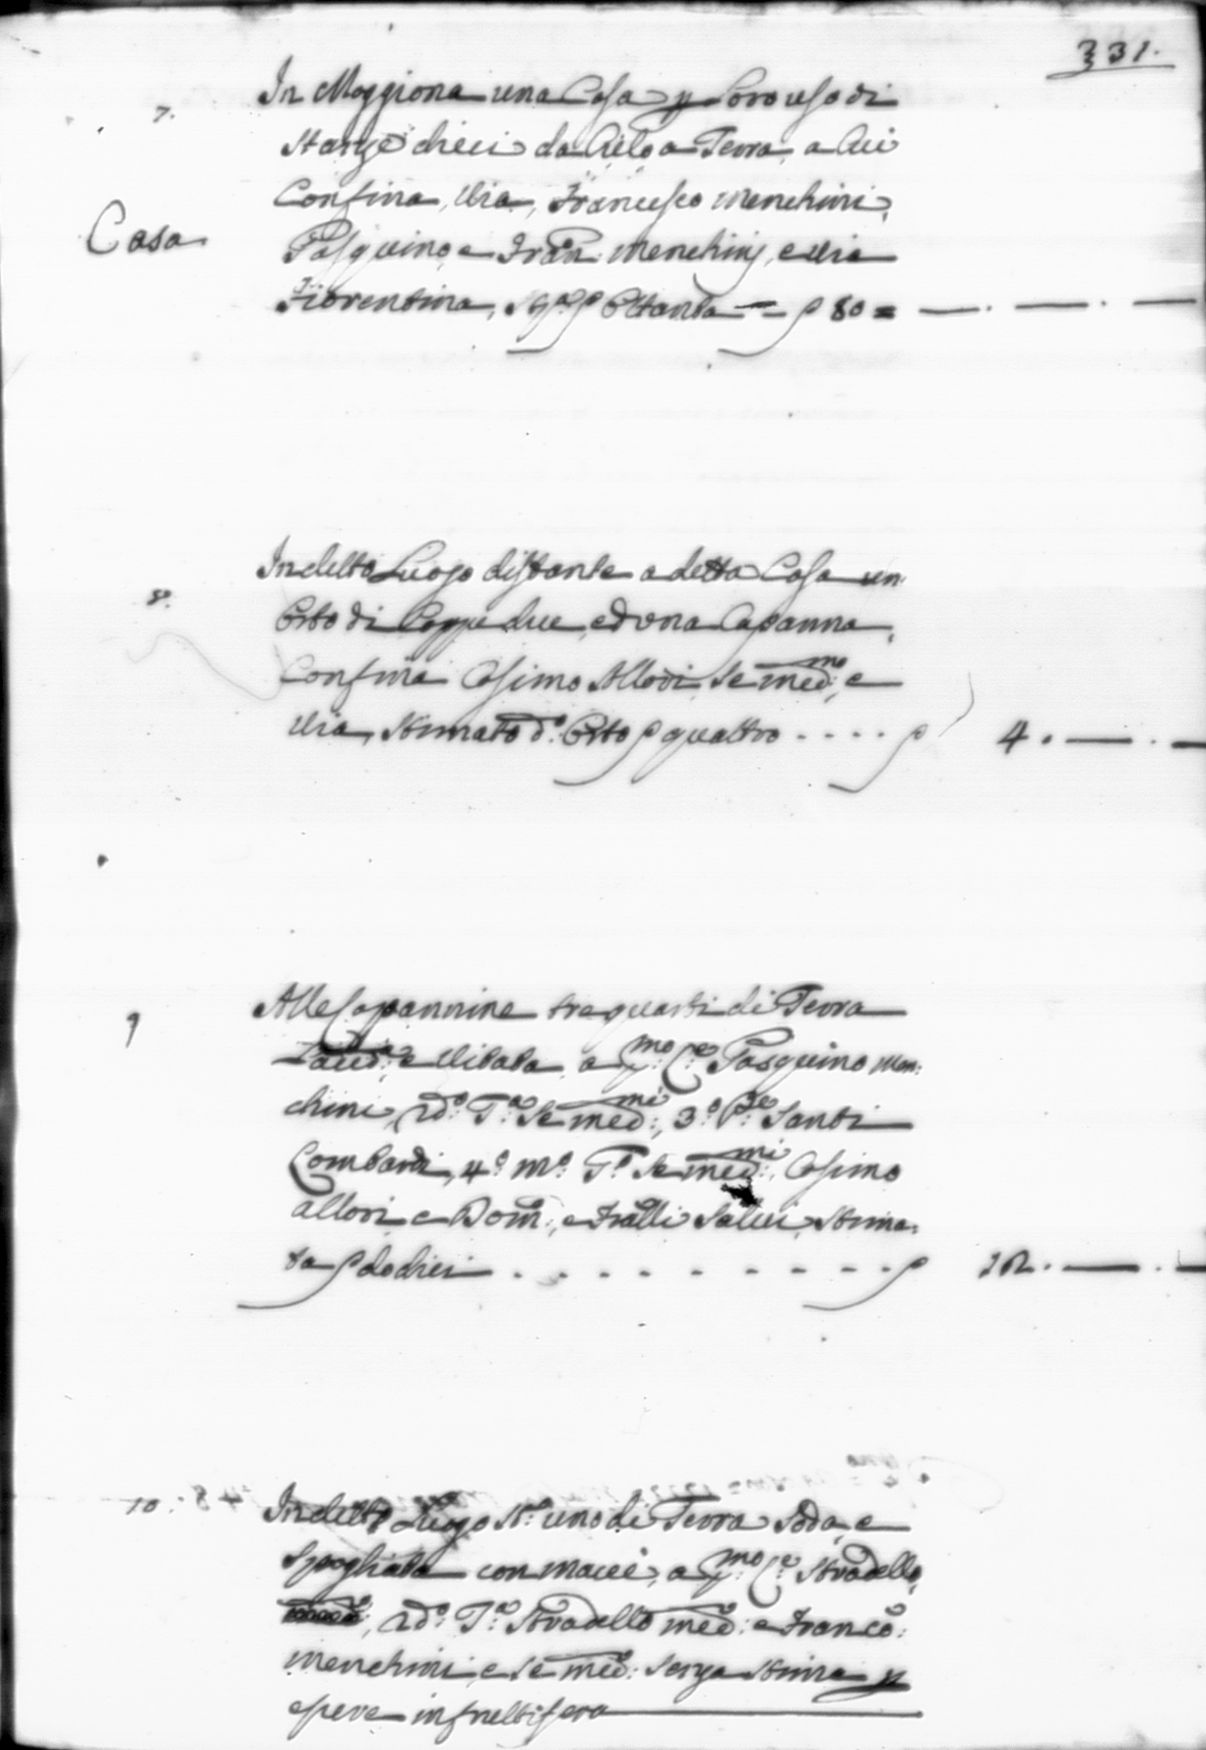 331.
7.
In Moggiona una Casa p Loro uso di
Stanze dieci da Cielo a Terra, a Cui
Confina, Via, Francesco Menchini,
Casa
Pasquino, e Fran: Menchinj, e Via
Fiorentina, Ottanta = 80 =
8.
In detto Luogo distante a detta Casa un
Orto di due, ed una Capanna,
Confina Cosimo Allori, Se med:mo, e
Via, Stimato d.o Orto quattro . . . . 4. — . —
9
Alle Capannine tre quarti di Terra
Lavo.a e Vitata, a p:mo C.o Pasquino Men:
chini, 2d:o T.a Se med:mi, 3.o Santi
Lombardi, 4.o M.o T.o Se med:mi, Cosimo
Allori e Dom:, e Fralli Salvi, Stima:
ta dodici . . . . . . . . . . 12. — . —
10.
In detto Luogo St.o uno di Terra Soda, e
Spogliata con Macie, a p:mo C.o Stradello,
2d:o T.a Stradello med: e Franco:
Menchini, e Se med: Senza Stima p
essere infruttifera